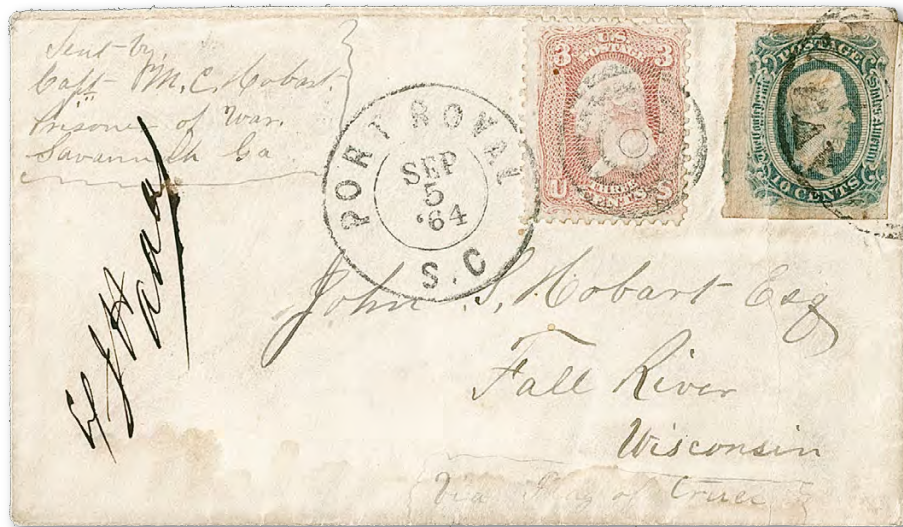 Sent by
Capt M. C. Hobart.
Prisoner of War.
Savannah Ga
PORT ROYAL
SEP
5
'64
S.C
U.S.
POSTAGE
3 3
THREE
CENTS
U S
POSTAGE
Confederate States of America
10 CENTS
John S. Hobart Esq
Fall River
Wisconsin
Via Flag of Truce